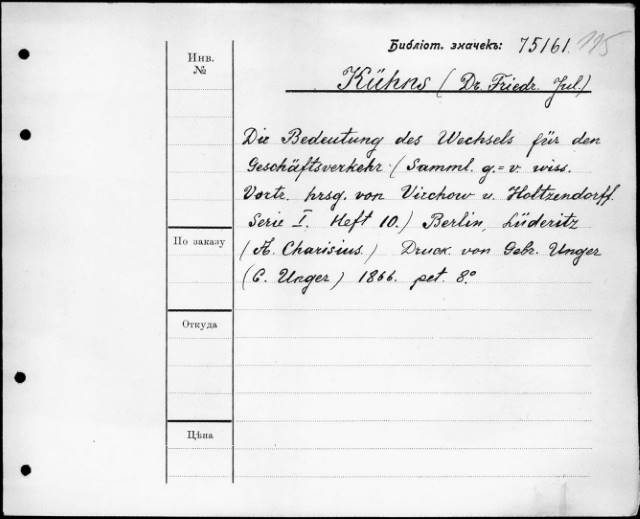 Библіот. значекъ: 75161. 115
Инв.
№
Kühns (Dr. Friedr. Jul.)
Die Bedeutung des Wechsels für den
Geschäftsverkehr (Samml. g.=v. wiss.
Vortr. hrsg. von Virchow u. Holtzendorff.
Serie I. Heft 10.) Berlin, Lüderitz
По заказу
(A. Charisius.) Druck. von Gebr. Unger
(C. Unger) 1866. pet. 8.°
Откуда
Цѣна